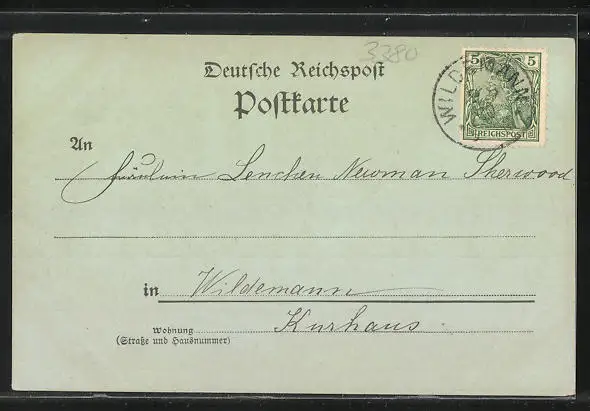 3380
Deutsche Reichspost
Postkarte
5 5
REICHSPOST
WILDEMANN
An
Fräulein Lenchen Newman Sherwood
in Wildemann
Kurhaus.
Wohnung
(Straße und Hausnummer)